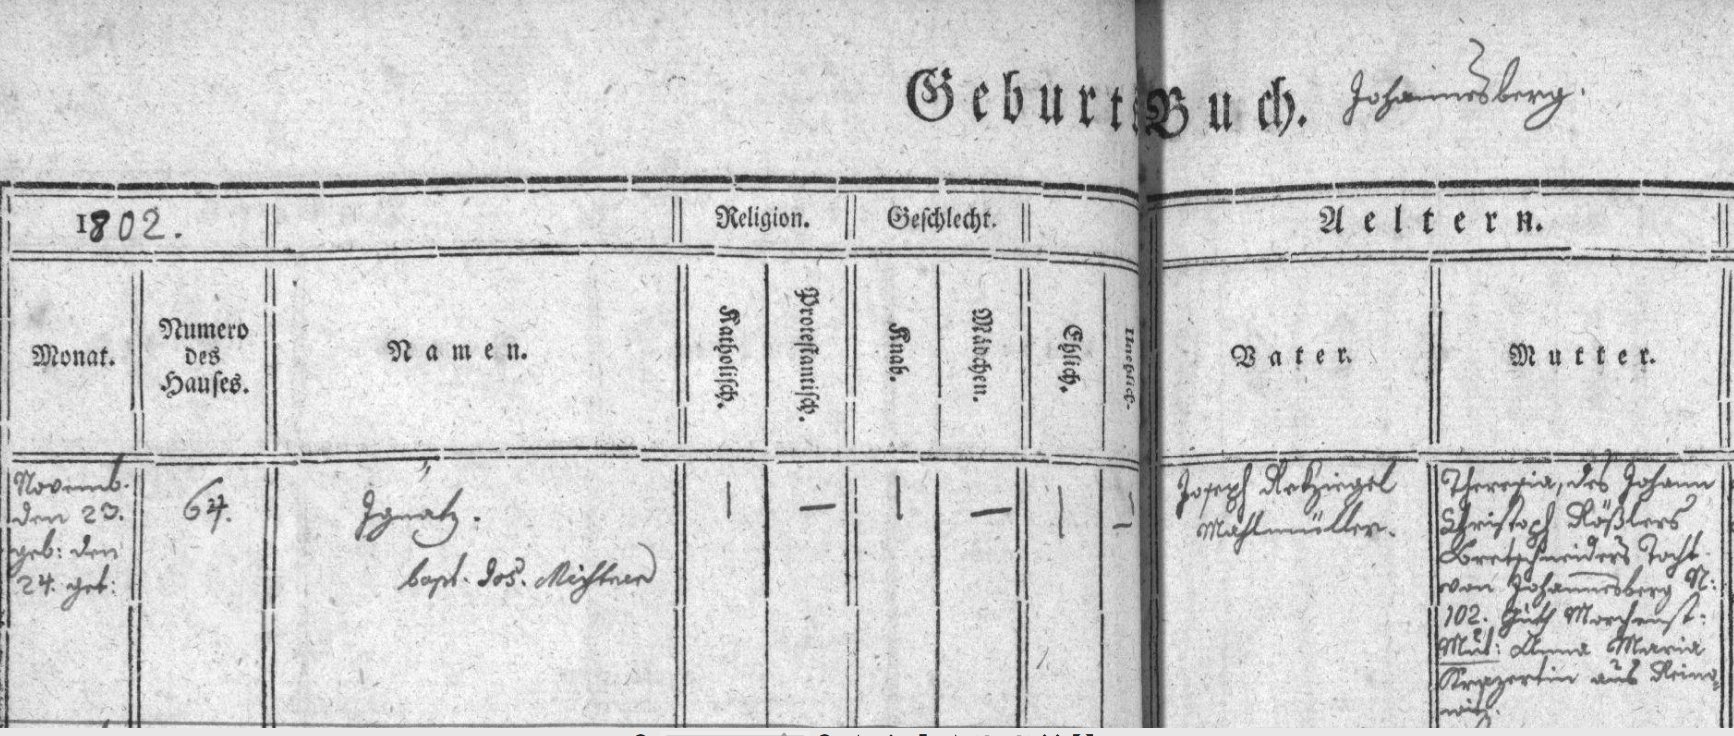 Geburts Buch. Johannesberg.
1802. Religion. Geschlecht. Aeltern.
Monat. Numero des Hauses. Namen. Katholisch. Protestantisch. Knab. Mädchen. Ehlich. Vater. Mutter.
Novemb.
den 23.
geb: den
24. get:
64.
Ignatz.
bapt. Jos.
Joseph
Mahlmüller.
Theresia, des Johann
Christoph Rößlers
Bretschneiders Tocht.
von Johannesberg N:
102. Guth Morchenst:
Mut: Anna Maria
aus Reino
witz.